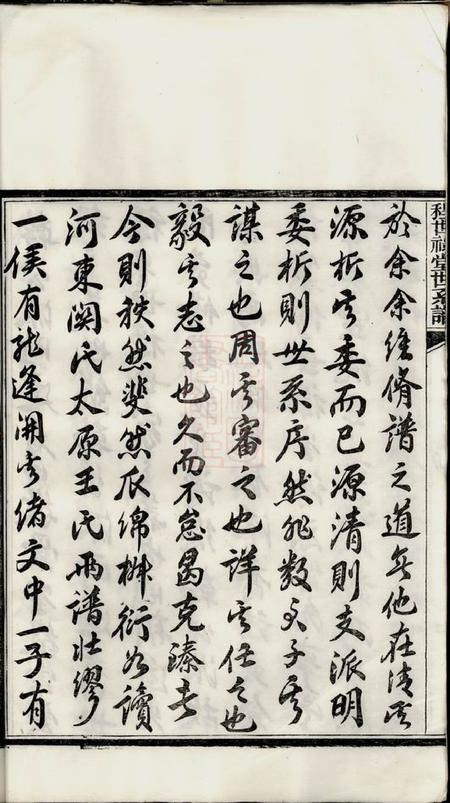 世祠堂世系譜
於余余維脩譜之道無他在清其
源析其委而已源清則支派明
委析則世系序然非數君子其
謀之也周其審之也詳其任之也
毅其志之也久而不怠曷克臻
今則秩然斐然瓜綿椒衍如讀
河東関氏太原王氏兩譜壯繆
一侯有龍逢開其緒文中一子有